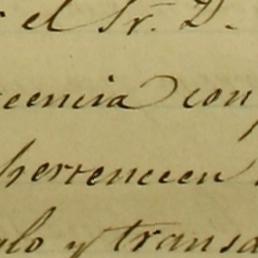 el Sr. D.
cencia con
pertenecen
lo y transa